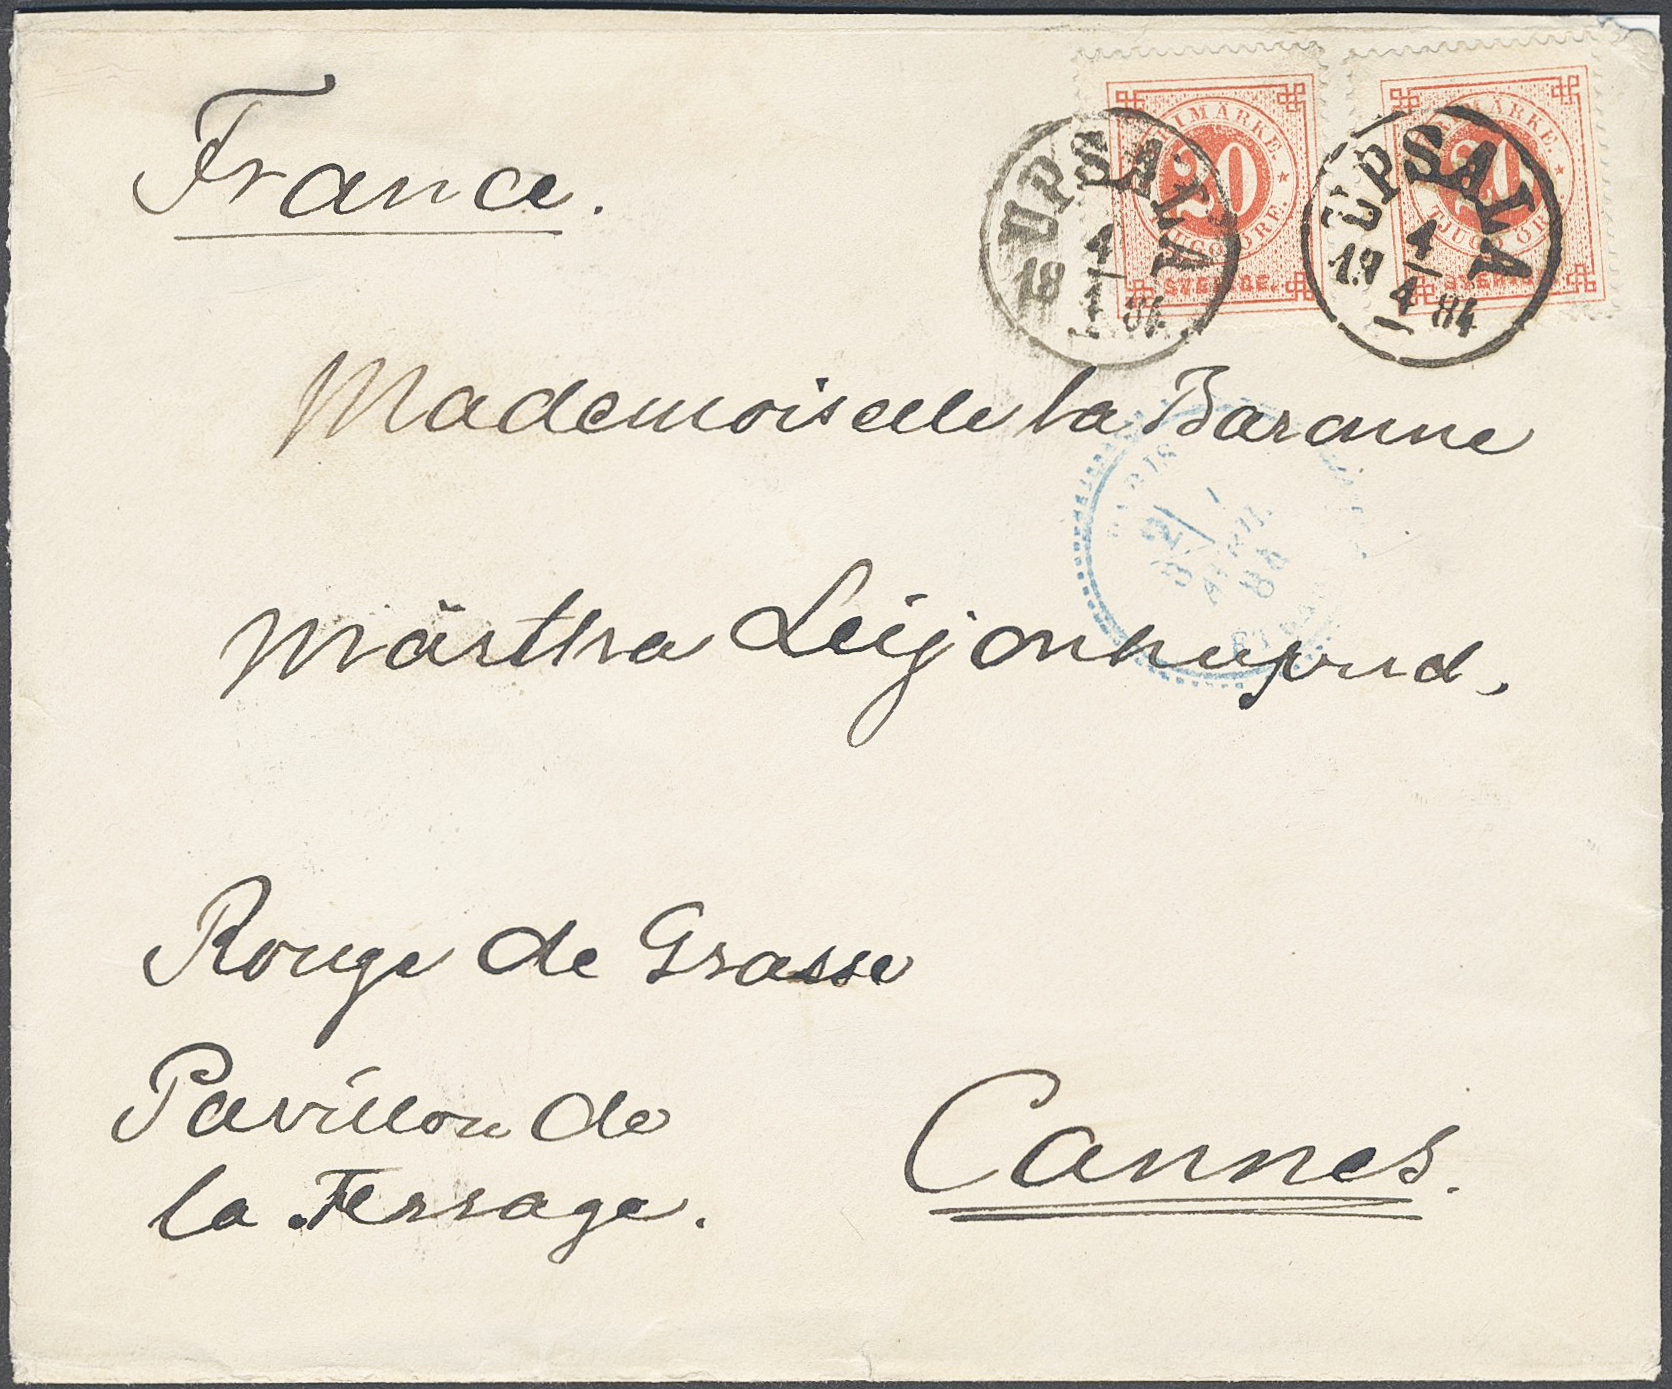 France.
FRIMÄRKE.
20
TJUGO ÖRE.
SVERIGE.
FRIMÄRKE.
20
TJUGO ÖRE.
SVERIGE.
UPSALA
19 4 84
UPSALA
19 4
4 84
Mademoiselle la Baronne
PARIS
AVRIL
84
Märtha Leijonhufvud.
Rouge de Grasse
Pavillon de
la Terrage.
Cannes.